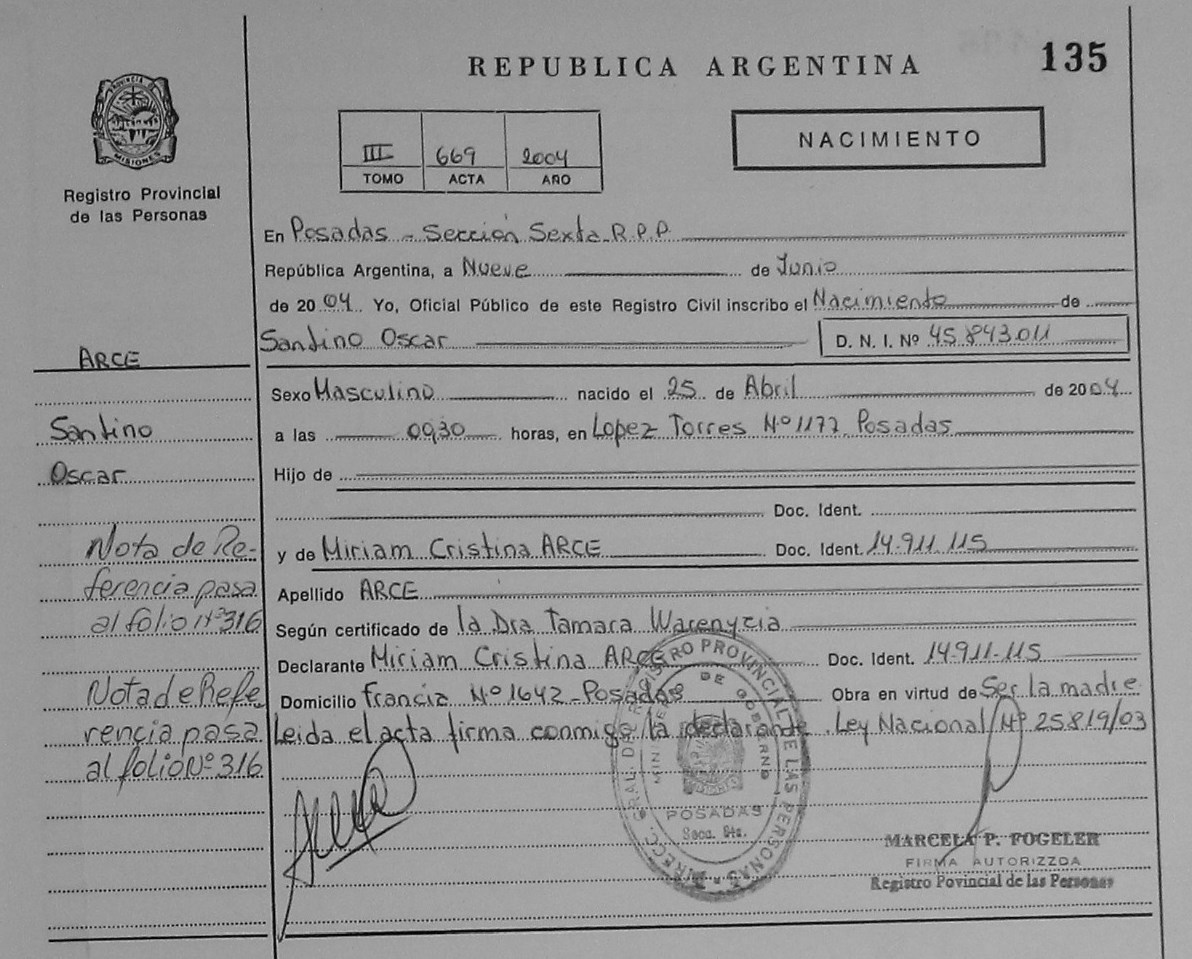 REPUBLICA ARGENTINA
135
PROVINCIA DE
MISIONES
Registro Provincial
de las Personas
III 669 2004
TOMO ACTA AÑO
NACIMIENTO
En Posadas - Sección Sexta R.P.P
República Argentina, a Nueve de Junio
de 20 04 Yo, Oficial Público de este Registro Civil inscribo el Nacimiento de
Santino Oscar D. N. I. Nº 45.843.011
ARCE
Santino
Oscar
Sexo Masculino nacido el 25 de Abril de 2004
a las 0930 horas, en Lopez Torres Nº 1177 Posadas
Hijo de
Doc. Ident.
y de Miriam Cristina ARCE Doc. Ident. 14.911.115
Apellido ARCE
Según certificado de la Dra Tamara
Declarante Miriam Cristina ARCE Doc. Ident. 14.911-115
Domicilio Francia Nº 1642 - Posadas Obra en virtud de Ser la madre
Leida el acta firma conmigo la declarante. Ley Nacional Nº 25819/03
Nota de Re-
ferencia pasa
al folio Nº 316
Nota de Refe
rencia pasa
al folio Nº 316
DIRECC. GRAL. DE REGISTRO PROVINCIAL DE LAS PERSONAS
DE GOBIERNO
POSADAS
Secc. 6ta.
MARCELA P. FOGELER
FIRMA AUTORIZZDA
Registro Povincial de las Personas